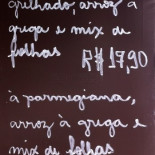 grelhado, arroz à
grega e mix de
folhas R$ 17,90
à parmegiana,
arroz à grega e
mix de folhas